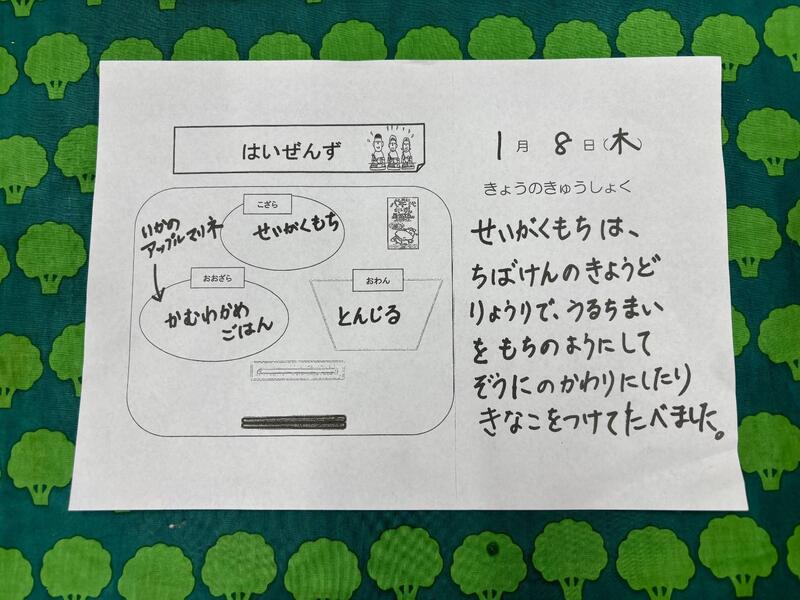 はいぜんず
こざら
せいがくもち
いかの
アップルマリネ
おおざら
かむわかめ
ごはん
おわん
とんじる
1月 8日(木)
きょうのきゅうしょく
せいがくもちは、
ちばけんのきょうど
りょうりで、うるちまい
をもちのようにして
ぞうにのかわりにしたり
きなこをつけてたべました。